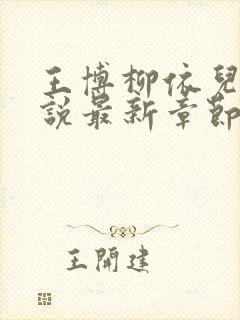 王博柳依兒
說最新章節
王開建